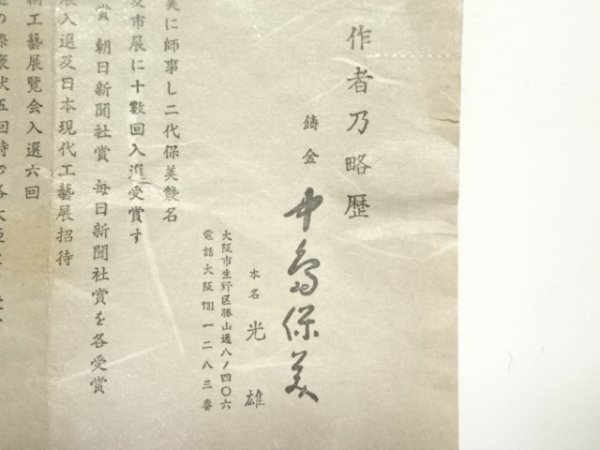 作者乃略歴
鋳金 中島保美
本名 光雄
大阪市生野区勝山通八ノ四〇六
電話大阪731一二八三番
美に師事し二代保美襲名
及市展に十数回入選受賞す
賞 朝日新聞社賞 毎日新聞社賞を各受賞
展入選及日本現代工藝展招待
術工藝展覧会入選六回